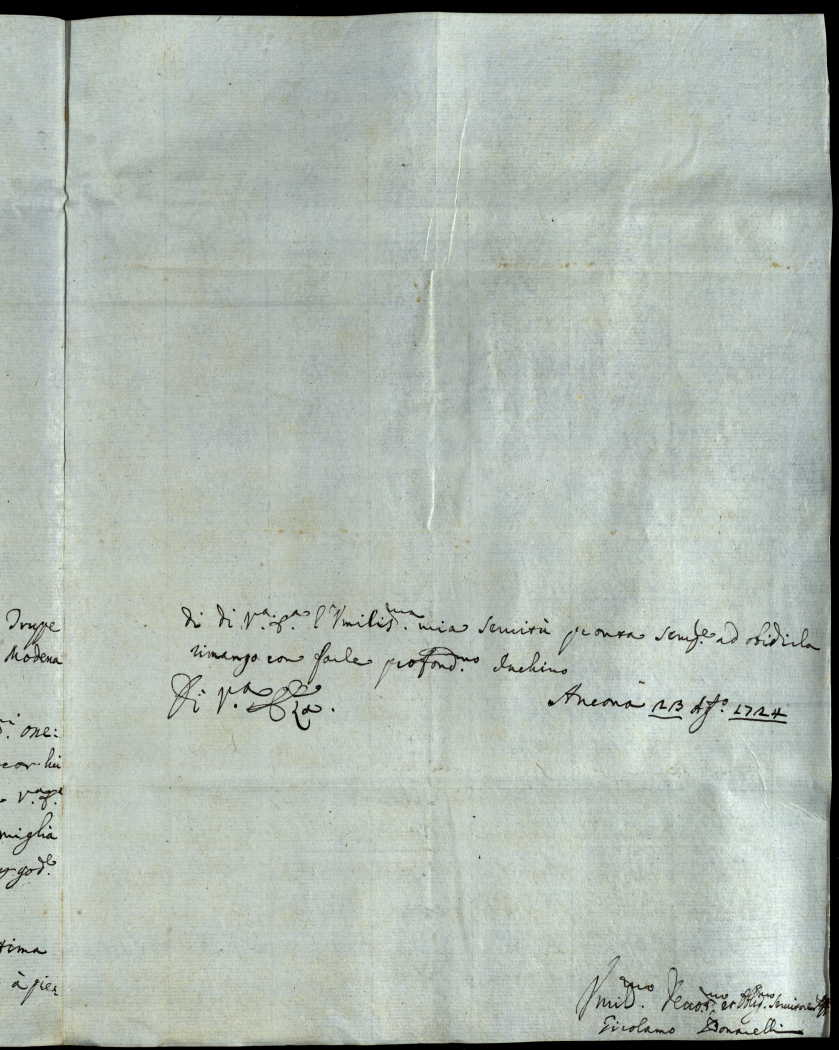 Truppe
Modena
one:
con lui
V.ra E.
miglia
god.e
tima
à pie:
di di V.ra E.a l'Vmiliss.ma mia seruitù pronta semp.e ad obidirla
rimango con farle profond.mo Inchino
Di V.a Ecc.za.
Ancona 23 Ag.o 1724
Vmil.mo Deuot.mo et Oblig.mo Seruitore
Girolamo